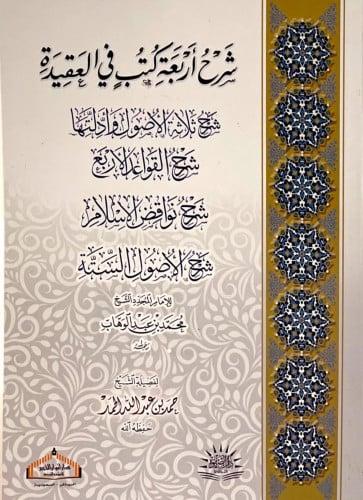 شرح أربعة كتب في العقيدة
شرح ثلاثة الأصول وأدلتها
شرح القواعد الأربع
شرح نواقض الإسلام
شرح الأصول الستة
للإمام المجدد الشيخ
محمد بن عبد الوهاب
رحمه الله
لفضيلة الشيخ
حمد بن عبد الله الحمد
حفظه الله